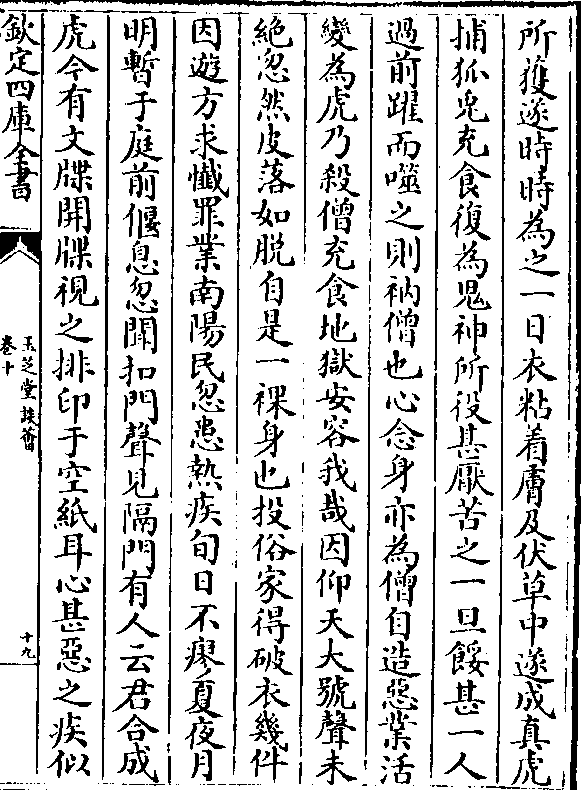 所獲遂時時為之一日衣粘着膚及伏草中遂成真虎
捕狐兎充食復為鬼神所役甚厭苦之一旦餒甚一人
過前躍而噬之則衲僧也心念身亦為僧自造惡業活
變為虎乃殺僧充食地獄安容我哉因仰天大號聲未
絶忽然皮落如脱自是一裸身也投俗家得破衣幾件
因遊方求懺罪業南陽民忽患熱疾旬日不瘳夏夜月
明暫于庭前偃息忽聞扣門聲見隔門有人云君合成
虎今有文牒開牒視之排印于空紙耳心甚惡之疾似
欽定四庫全書
玉芝堂談薈
卷十
十九